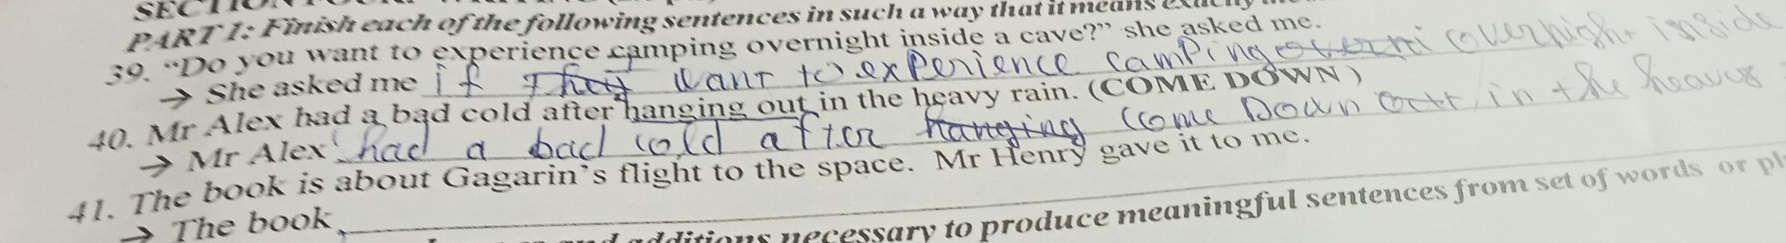 PART 1: Finish each of the following sentences in such a way that it means
39. “Do you want to experience camping overnight inside a cave?” she asked me.
→ She asked me if they want to experience camping overnight inside
40. Mr Alex had a bad cold after hanging out in the heavy rain. (COME DOWN)
→ Mr Alex had a bad cold after hanging come Down in the heavy
41. The book is about Gagarin's flight to the space. Mr Henry gave it to me.
→ The book
additions necessary to produce meaningful sentences from set of words or